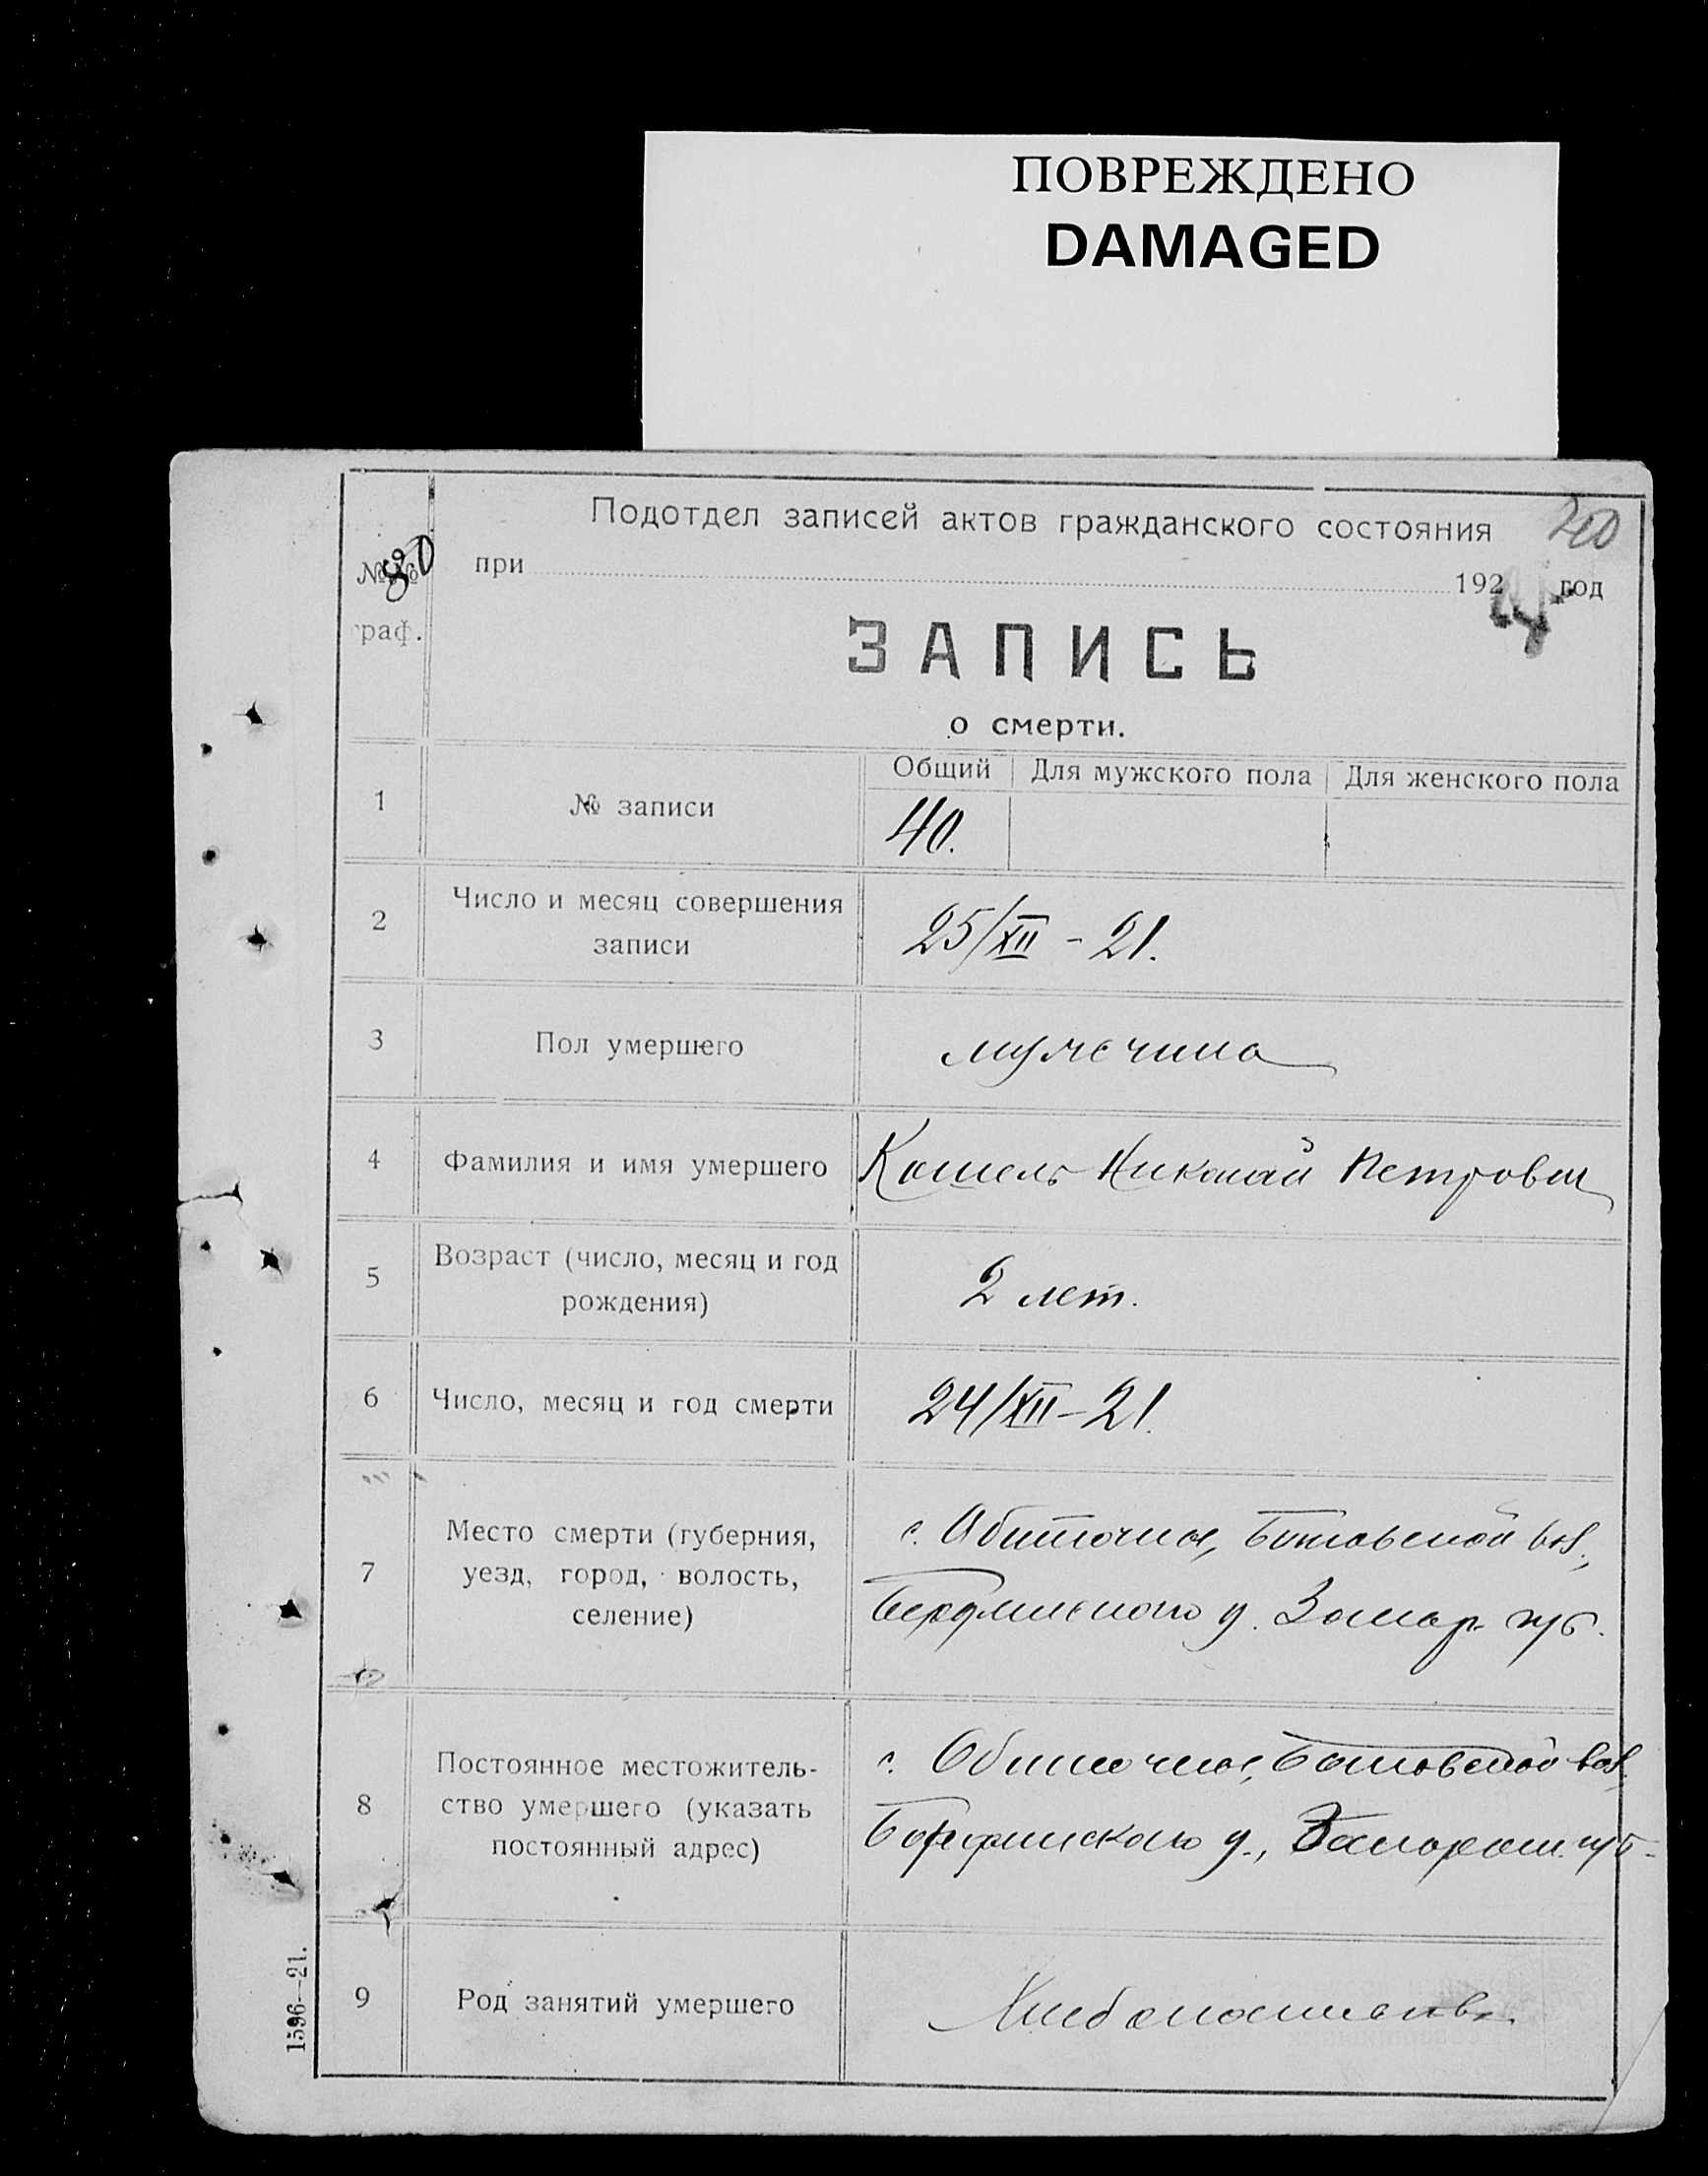 ПОВРЕЖДЕНО
DAMAGED
Подотдел записей актов гражданского состояния
20
№№
80
при 192 год
граф.
ЗАПИСЬ
о смерти.
Общий Для мужского пола Для женского пола
1 № записи 40.
2 Число и месяц совершения
записи
25/XII - 21.
3 Пол умершего мужчина
4 Фамилия и имя умершего Кошель Николай Петрович
5 Возраст (число, месяц и год
рождения)
2 лет.
6 Число, месяц и год смерти 24/XII-21.
7 Место смерти (губерния,
уезд, город, волость,
селение)
с. Обиточна, вол.,
Бердянского у. Запор. губ.
8 Постоянное местожитель-
ство умершего (указать
постоянный адрес)
с. Обиточна, вол.
Бердянского у., Запорож. губ.
9 Род занятий умершего
1596—21.